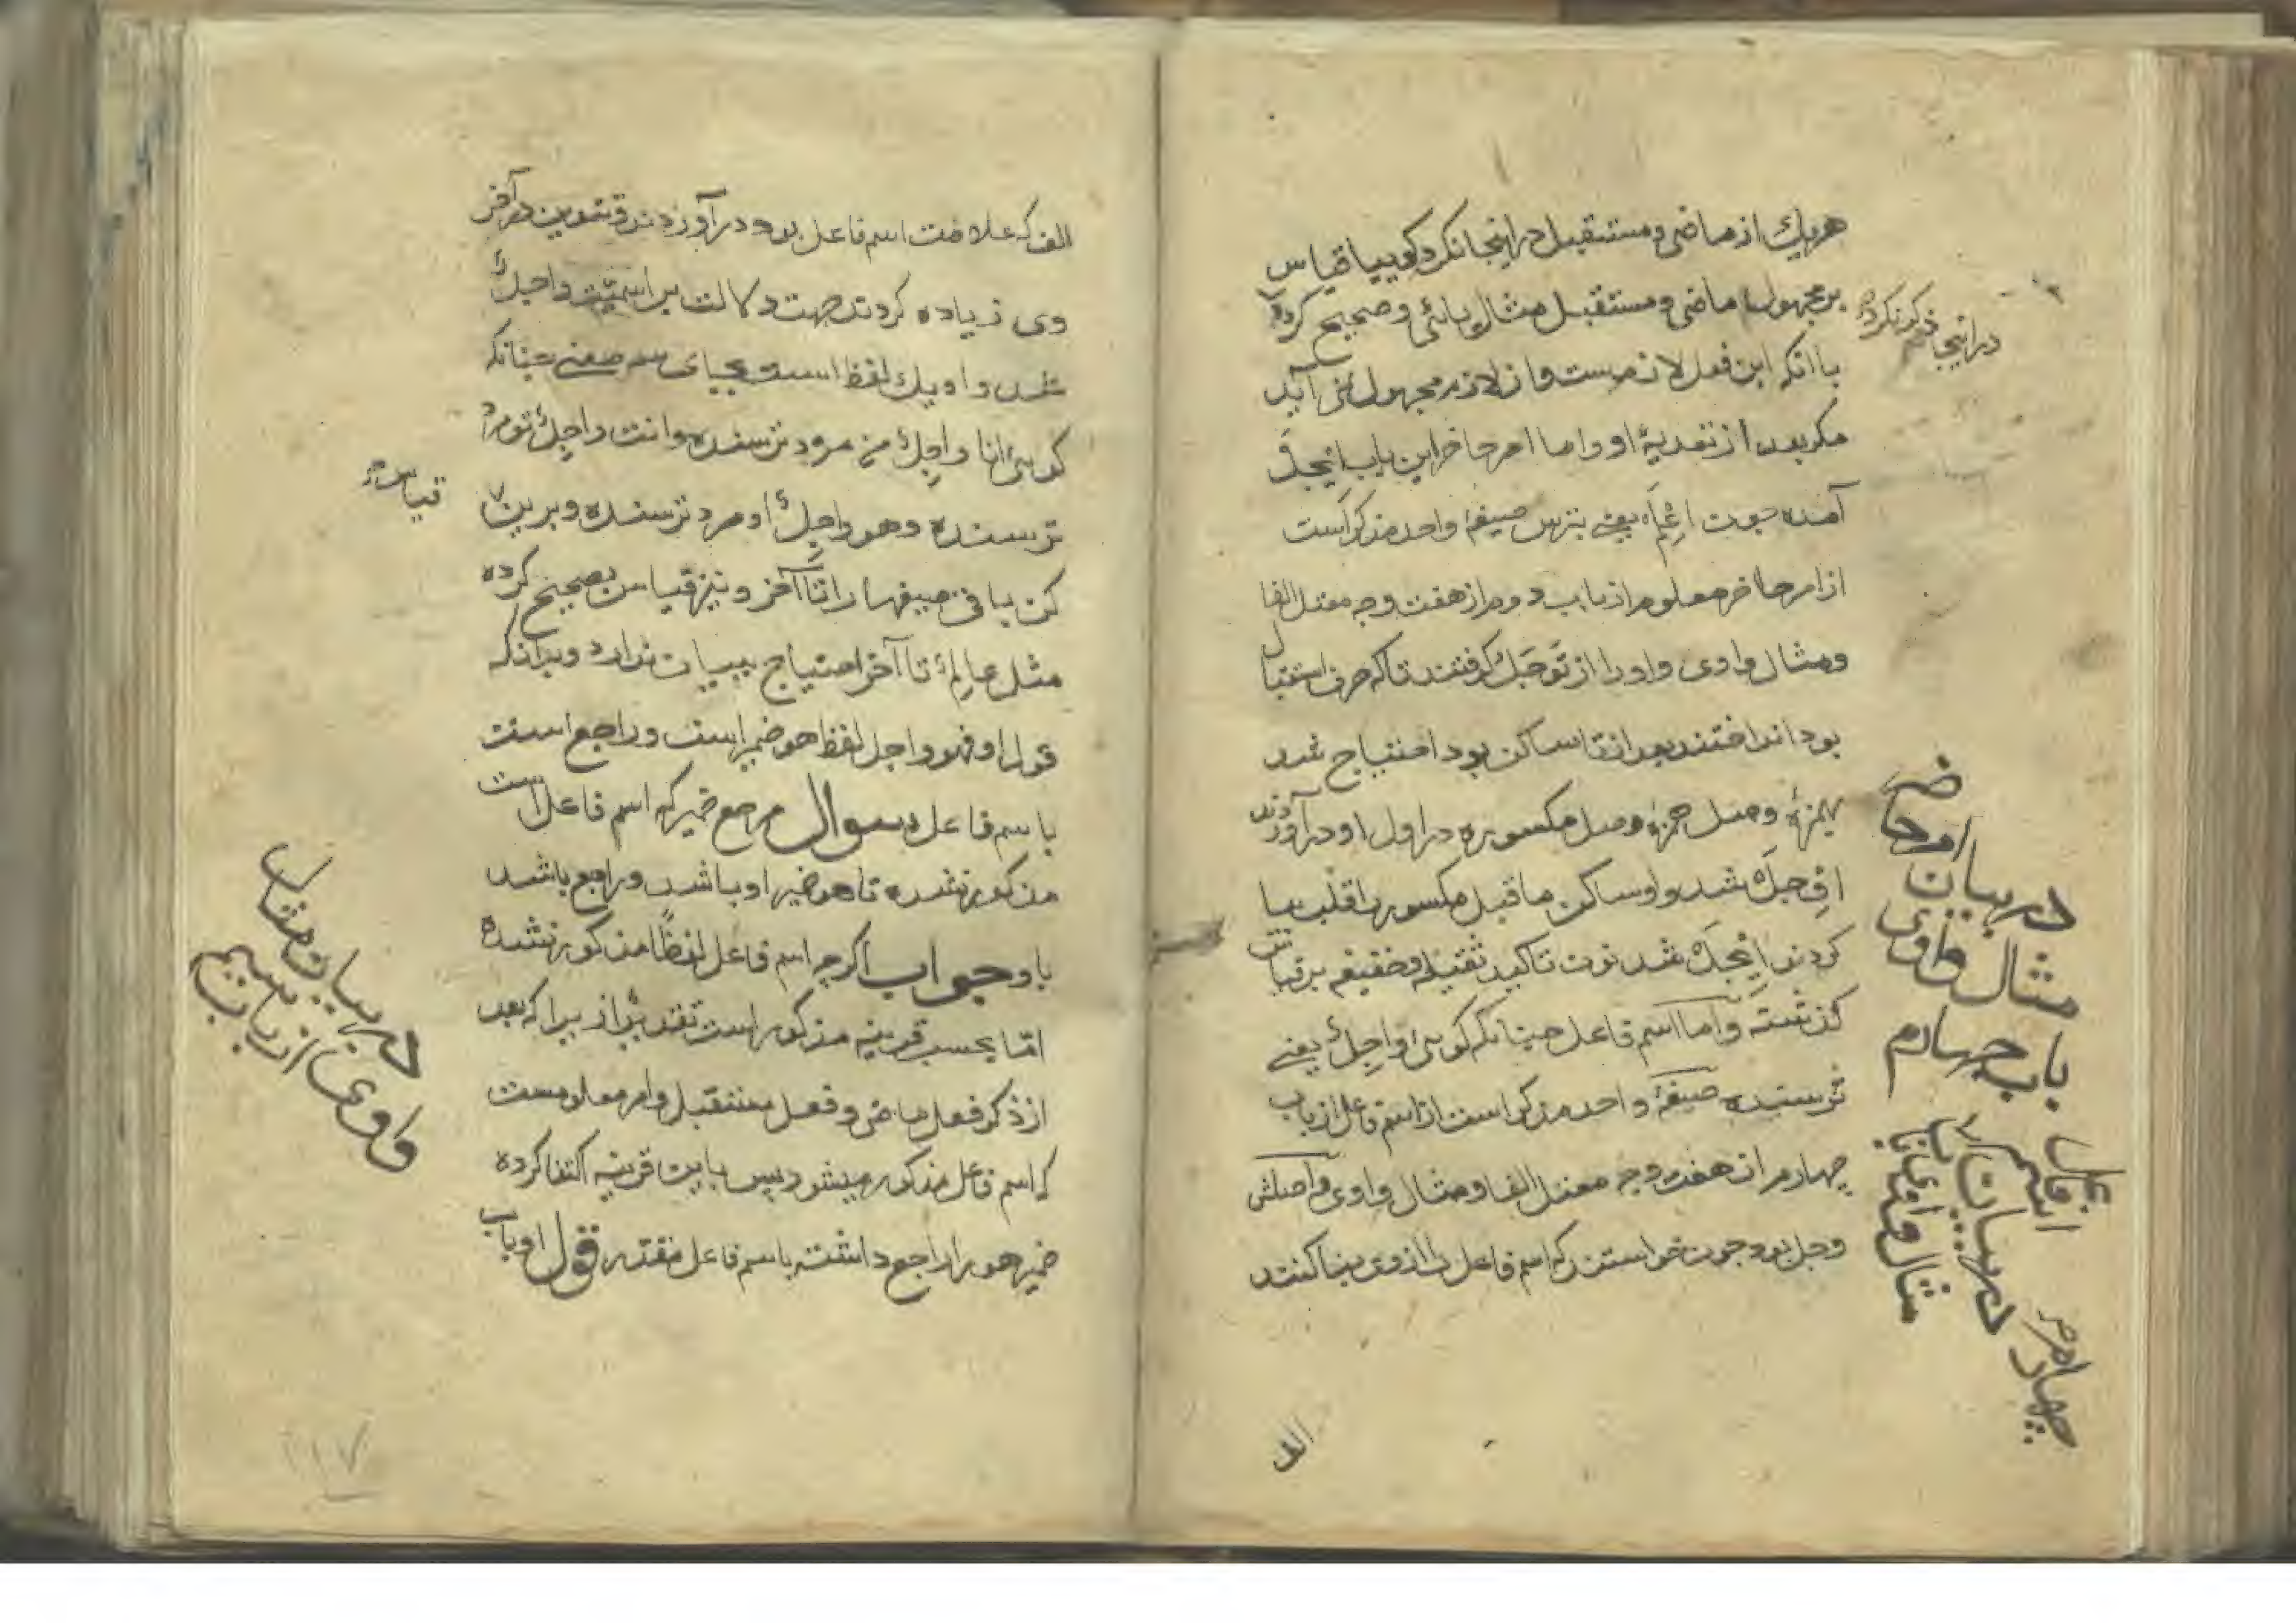 هریك از ماضی و مستقبل در اینجا نکرد کوییا قیاس
بر مجهول ماضی و مستقبل مثال یائی و صحیح کرده
با آنکه این فعل لازمست و از لازم مجهول نمی آید
مکر بعد از تعدیهٔ او و اما امر حاضر این باب ایجل
آمده چون اعلم یعنی بترس صیغهٔ واحد مذکر است
از امر حاضر معلوم از باب دوم از هفت وجه معتل الفا
و مثال واوی و اورا از توجل کرفتند تا که حرف استقبال
بود انداختند بعد از تا ساکن بود احتیاج شد
بهمزهٔ وصل همزهٔ وصل مکسوره در اول او در آوردند
اوجل شد واو ساکن ما قبل مکسور را قلب بیا
کردند ایجل شد نون تاکید ثقیله و خفیفه بر قیاس
کذشته و اما اسم فاعل چنانکه کویی واجل یعنی
ترسنده صیغهٔ واحد مذکر است از اسم فاعل از باب
چهارم از هفت وجه معتل الفا و مثال واوی و اصلش
وجل بود چون خواستند که اسم فاعل را از وی بنا کنند
در اینجا ذکر نکرده
در بیان امر حاضر
مثال واوی
باب چهارم
در بیان اسم فاعل
مثال واوی از باب
چهارم
الف
الف که علامت اسم فاعل بود در آوردند و تنوین در آخر
وی زیاده کردند جهت دلالت بر اسمیت واجل
شد و او یك لفظ است بجای سه معنی چنانکه
کویی انا واجل من مرد ترسنده و انت واجل تو مرد
ترسنده و هو واجل او مرد ترسنده و برین
قیاس
کن باقی صیغها را تا آخر و نیز قیاس بصحیح کرده
مثل عالم تا آخر احتیاج ببیان ندارد و بدانکه
قول او فهو واجل لفظ هو ضمیر است و راجع است
با سم فاعل سوال مرجع ضمیر که اسم فاعل است
مذکور نشده تا هو ضمیر او باشد و راجع باشد
باو جواب اکرچه اسم فاعل لفظا مذکور نشده
اما بحسب قرینه مذکور است تقدیرا زیرا که بعد
از ذکر فعل ماضی و فعل مستقبل و امر معلومست
که اسم فاعل مذکور میشود پس باین قرینه اکتفا کرده
ضمیر هو را راجع داشته با سم فاعل مقدر قول او باب
در بیان مثال
واوی از باب سیم
۱۱۷